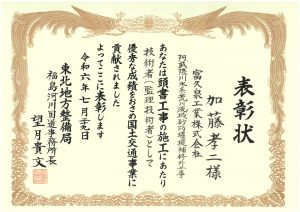 表彰状
富久泉工業株式会社
加藤孝二様
あなたは頭書工事の施工にあたり
技術者(監理技術者)として
優秀な成績をおさめ国土交通事業に
貢献されました
よってここに表彰します
令和六年七月
東北地方整備局
福島河川国道事務所長
望月貴文